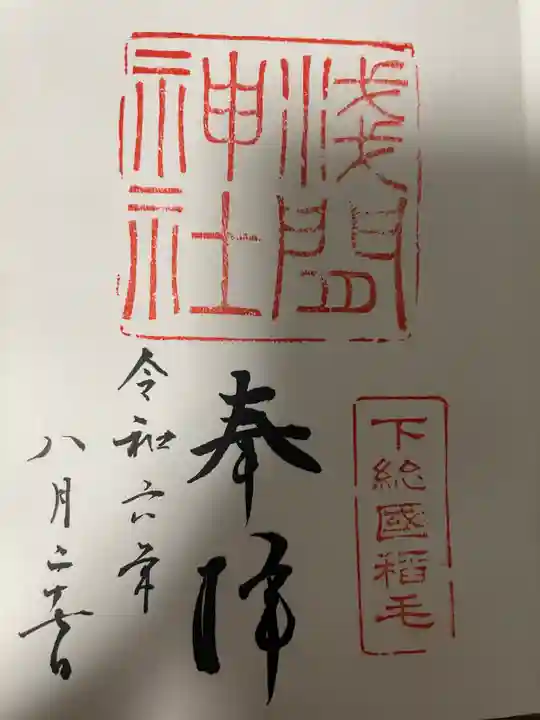 浅間
神社
下総國稲毛
奉拝
令和六年
八月二十七日